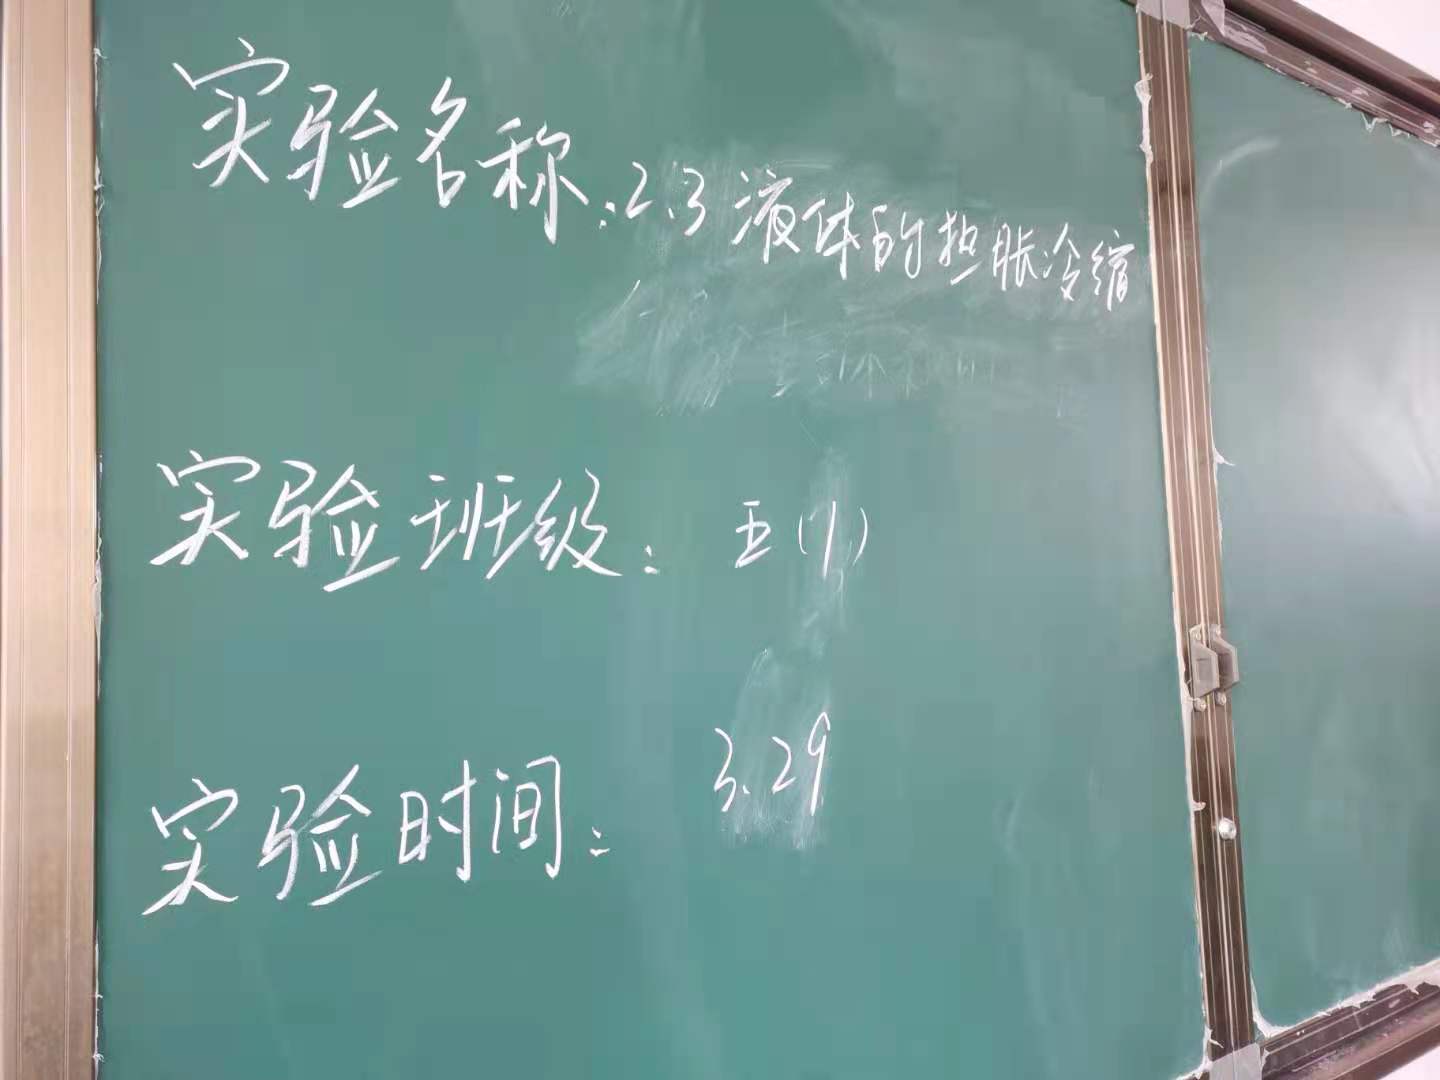 实验名称:2.3液体的热胀冷缩
实验班级: 五(1)
实验时间: 3.29